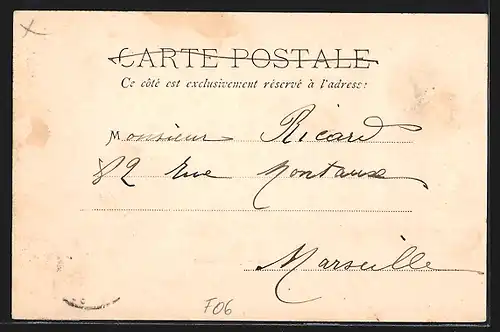 CARTE POSTALE
Ce côté est exclusivement réservé à l'adresse:
Monsieur Ricard
82 rue Montaux
Marseille
F06